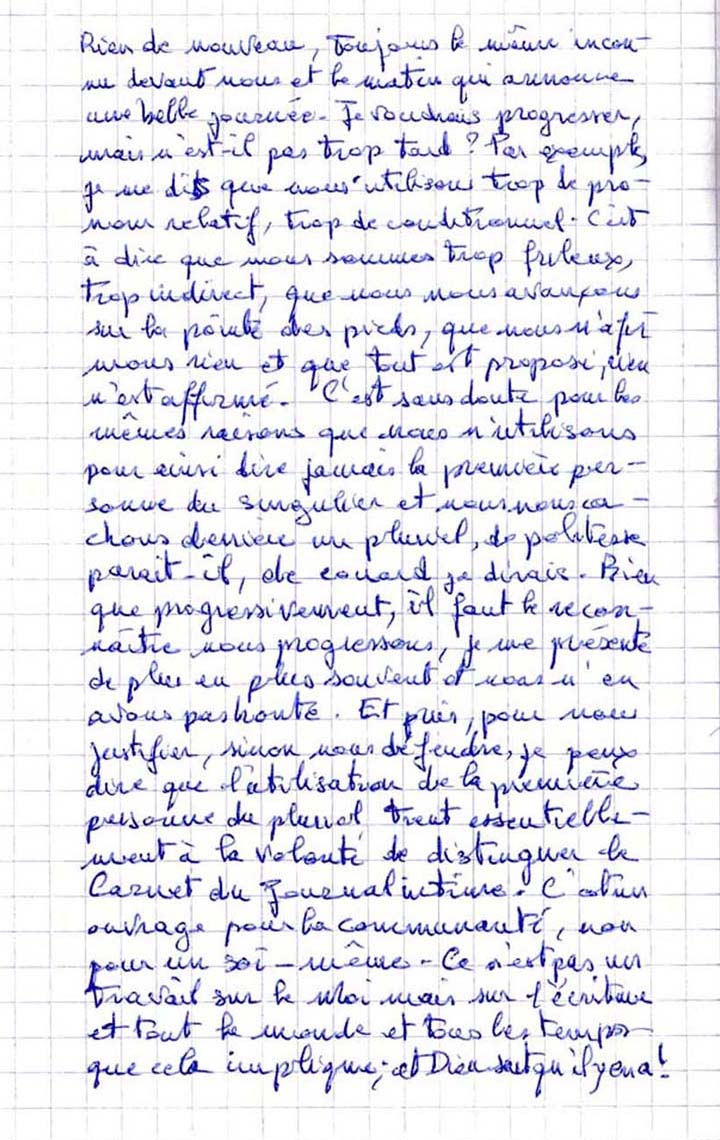 Rien de nouveau, toujours le même incon-
nu devant nous et le matin qui annonce
une belle journée. Je voudrais progresser,
mais n'est-il pas trop tard ? Par exemple,
je me dis que nous utilisons trop de pro-
nom relatif, trop de conditionnel. C'est
à dire que nous sommes trop frileux,
trop indirect, que nous nous avançons
sur la pointe des pieds, que nous n'affir
mons rien et que tout est proposé, rien
n'est affirmé. C'est sans doute pour les
mêmes raisons que nous n'utilisons
pour ainsi dire jamais la première per-
sonne du singulier et nous nous ca-
chons derrière un pluriel, de politesse
parait-il, de couard je dirais. Bien
que progressivement, il faut le recon-
naître nous progressons, je me présente
de plus en plus souvent et nous n'en
avons pas honte. Et puis, pour nous
justifier, sinon nous défendre, je peux
dire que l'utilisation de la première
personne du pluriel tient essentielle-
ment à la volonté de distinguer le
Carnet du Journal intime. C'est un
ouvrage pour la communauté, non
pour un soi-même. Ce n'est pas un
travail sur le Moi mais sur l'écriture
et tout le monde et tous les temps
que cela implique ; et Dieu sait qu'il y en a !